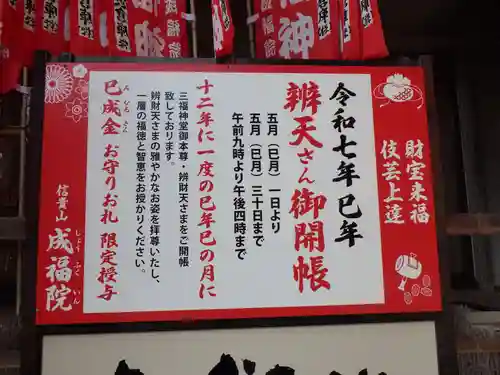 財宝来福
伎芸上達
令和七年巳年
辨天さん御開帳
五月（巳月）一日より
五月（巳月）三十日まで
午前九時より午後四時まで
十二年に一度の巳年巳の月に
三福神堂御本尊・辨財天さまをご開帳
致しております。
辨財天さまの雅やかなお姿を拝尊いたし、
一層の福徳と智恵をお授かりください。
巳成金 お守りお札 限定授与
み なる かね
信貴山 成福院
じょう ふく いん